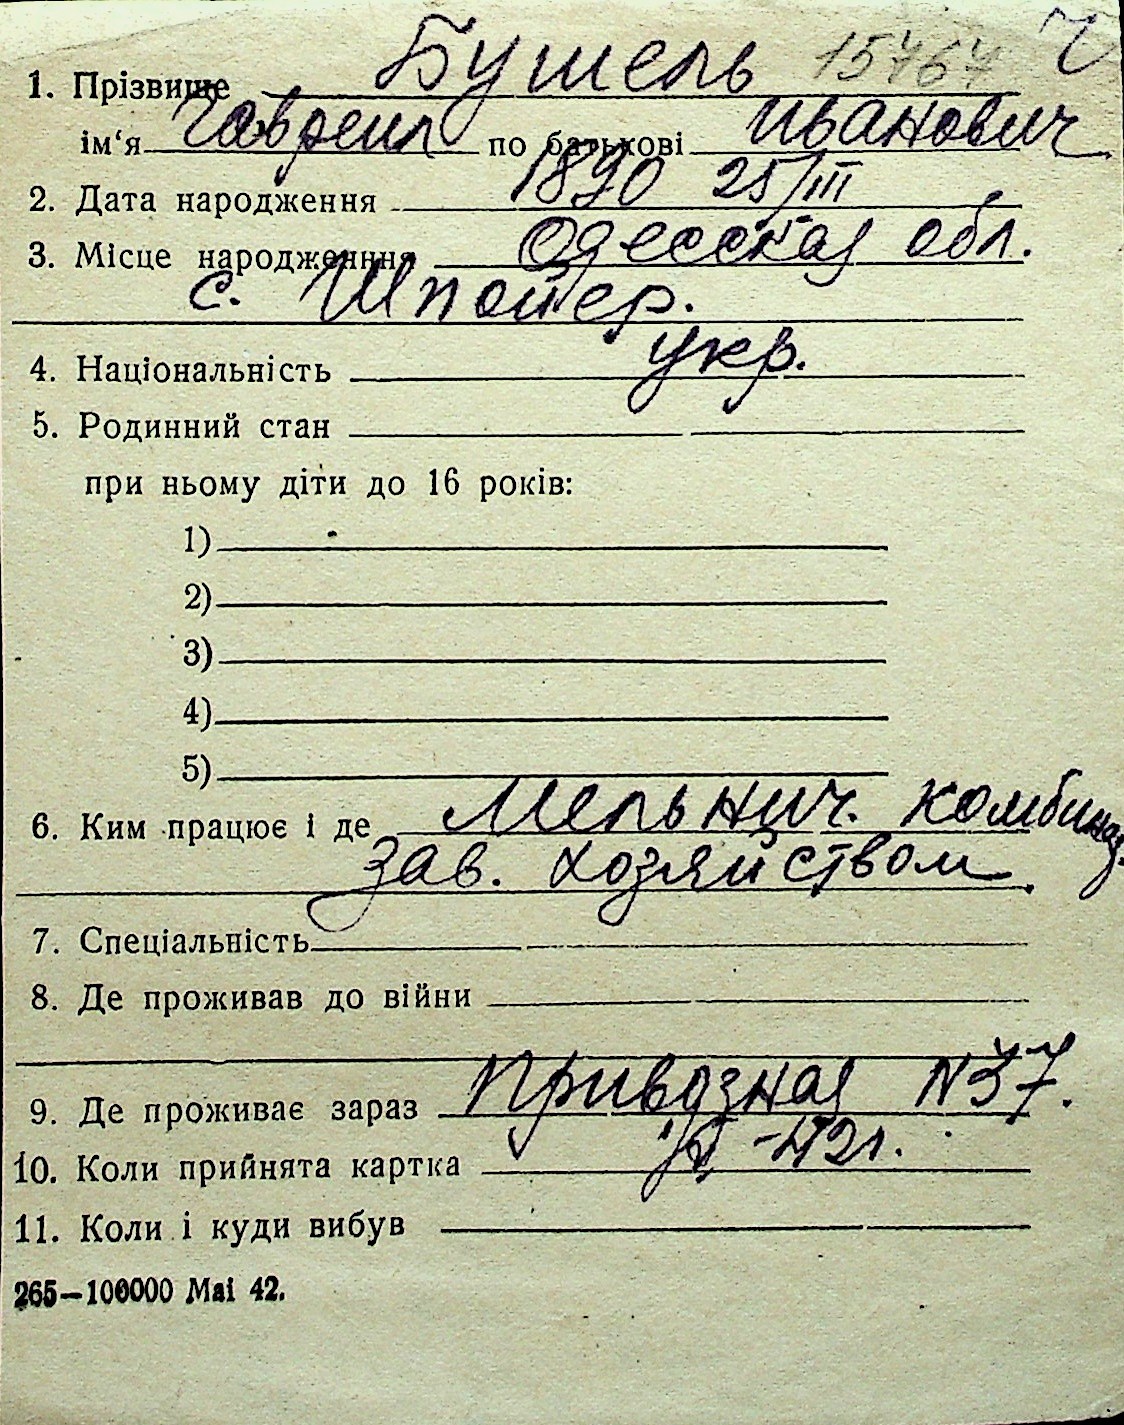 1. Прізвище Бушель 15767
ім‘я Гавреил по батькові Иванович
2. Дата народження 1890 25/III
3. Місце народженння Одесская обл.
с. Шпойер.
4. Національність укр.
5. Родинний стан
при ньому діти до 16 років:
1)
2)
3)
4)
5)
6. Ким працює і де Мельнич. комбинат.
Зав. хозяйством
7. Спеціальність
8. Де проживав до війни
9. Де проживає зараз Привозная N37.
10. Коли прийнята картка
11. Коли і куди вибув
265—100000 Mai 42.